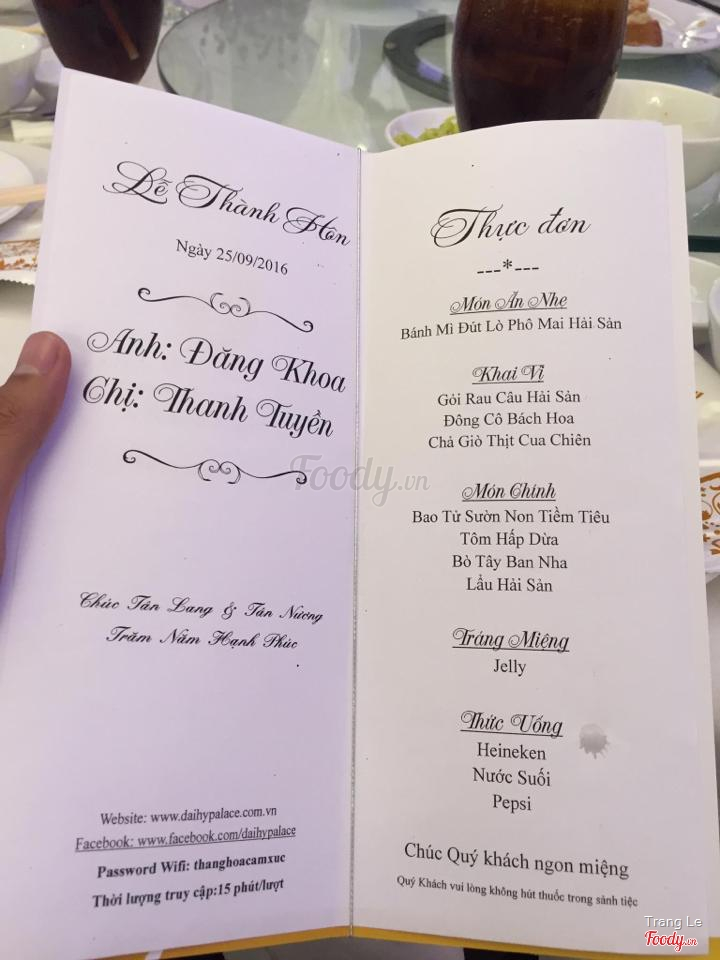 Lễ Thành Hôn
Ngày 25/09/2016
Anh: Đăng Khoa
Chị: Thanh Tuyền
Chúc Tân Lang & Tân Nương
Trăm Năm Hạnh Phúc
Website: www.daihypalace.com.vn
Facebook: www.facebook.com/daihypalace
Password Wifi: thanghoacamxuc
Thời lượng truy cập:15 phút/lượt
Thực đơn
---*---
Món Ăn Nhẹ
Bánh Mì Đút Lò Phô Mai Hải Sản
Khai Vị
Gỏi Rau Câu Hải Sản
Đông Cô Bách Hoa
Chả Giò Thịt Cua Chiên
Món Chính
Bao Tử Sườn Non Tiềm Tiêu
Tôm Hấp Dừa
Bò Tây Ban Nha
Lẩu Hải Sản
Tráng Miệng
Jelly
Thức Uống
Heineken
Nước Suối
Pepsi
Chúc Quý khách ngon miệng
Quý Khách vui lòng không hút thuốc trong sảnh tiệc
Foody.vn
Trang Le
Foody.vn